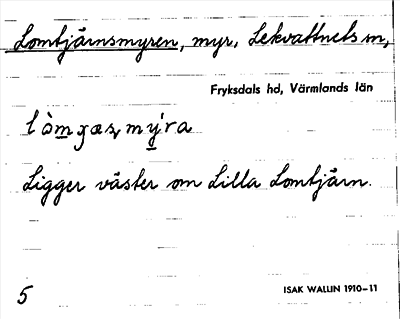 Lomtjärnsmyren, myr, Lekvattnets sn,
Fryksdals hd, Värmlands län
Ligger väster om Lilla Lomtjärn.
5
ISAK WALLIN 1910–11